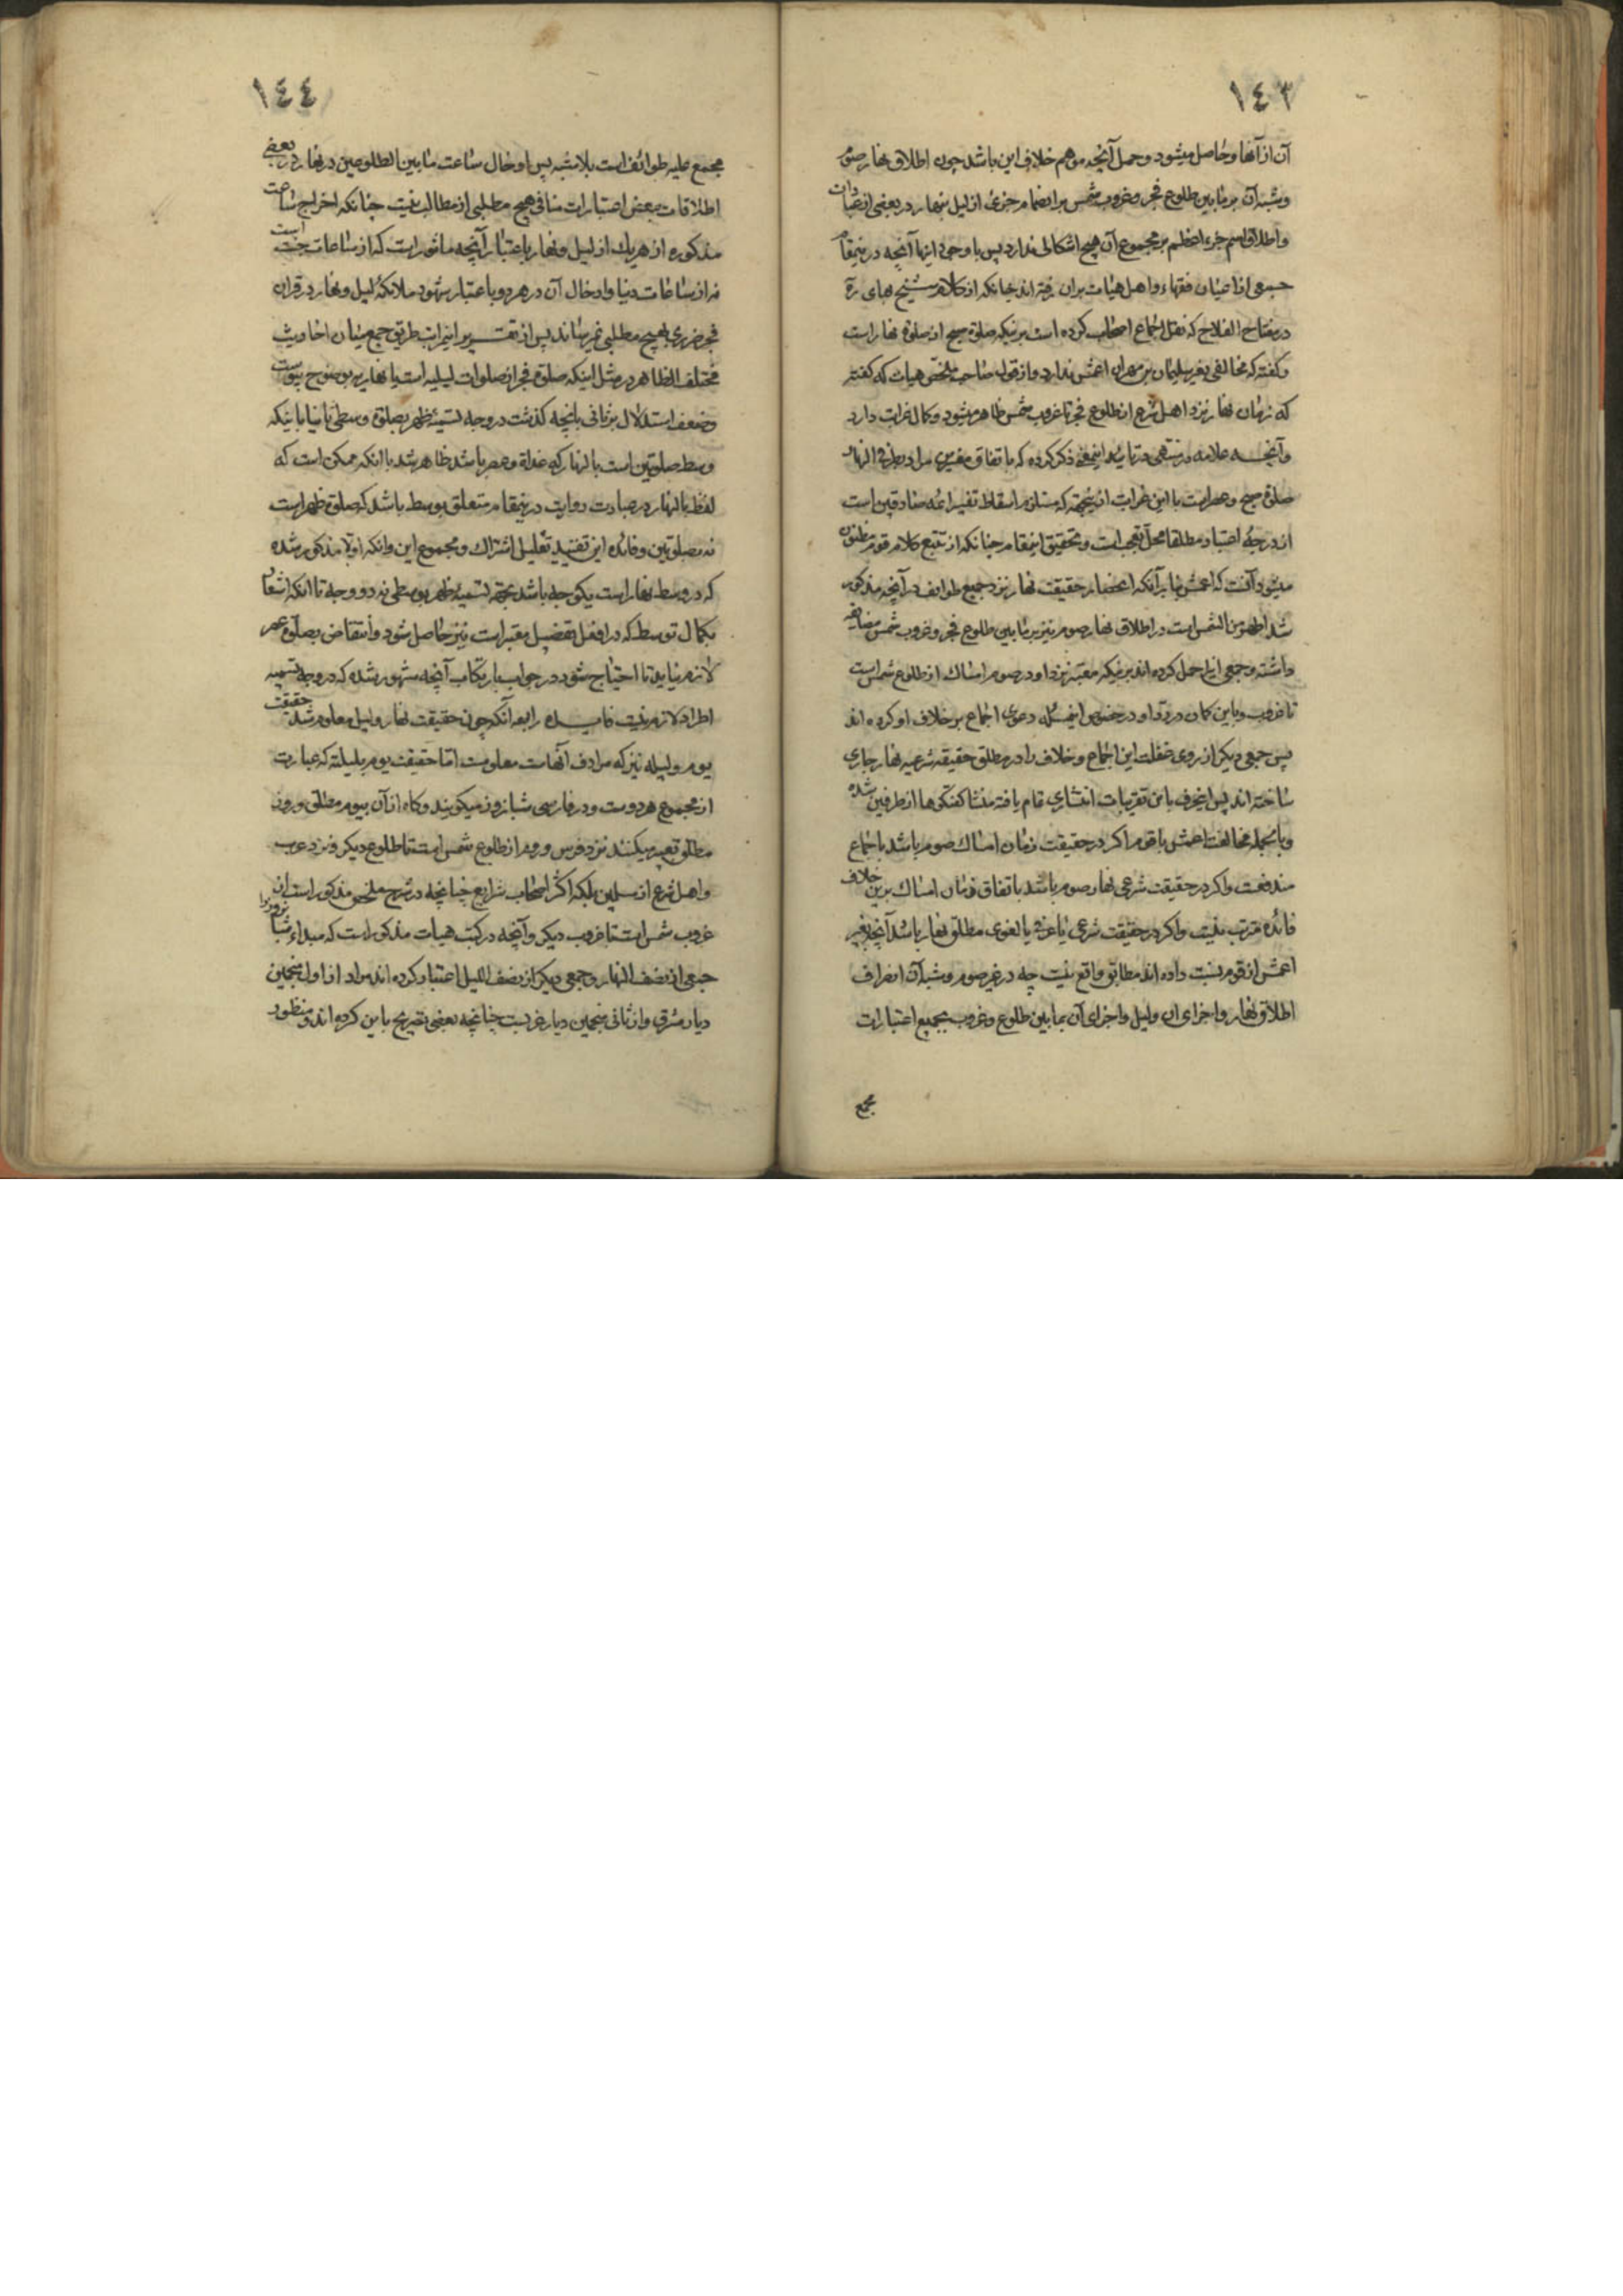 ١٤٣
آن از آنها و حاصل میشود و حمل آنچه موهم خلاف این باشد چون اطلاق نهار صوم
و شبه آن بر مابین طلوع فجر و غروب شمس بر انضمام جزئی از لیل بنهار در بعضی از عبادات
و اطلاق اسم جزء اعظم بر مجموع آن هیچ اشکالی ندارد پس با وجود اینها آنچه درینمقام
جمعی از اعیان فقهاء و اهل هیات بران رفته اند چنانکه از کلام شیخ بهای ره
در مفتاح الفلاح که نقل اجماع اصحاب کرده است برینکه صلوة صبح از صلوة نهار است
و گفته که مخالفی بغیر سلیمان بن مهران اعمش ندارد و از قول صاحب ملخص هیات که گفته
که زمان نهار نزد اهل شرع از طلوع فجر تا غروب شمس ظاهر میشود و کمال غرابت دارد
و آنچه علامه در منتهی در تایید اینمعنی ذکر کرده که باتفاق مفسرین مراد بطرفی النهار
صلوة صبح و عصر است با این غرابت ازینجهة که مستلزم اسقاط تفسیر ائمه صادقین است
از درجهٔ اعتبار مطلقا محل تعجب است و تحقیق اینمقام چنانکه از تتبع کلام قوم مظنون
میشود آنست که اعمش بنابر آنکه انحصار حقیقت نهار نزد جمیع طوایف در آنچه مذکور
شد اظهر من الشمس است در اطلاق نهار صوم نیز بر مابین طلوع فجر و غروب شمس مضایقه
داشته و جمعی اینرا حمل کرده اند برینکه معتبر نزد او در صوم امساک از طلوع شمس است
تا غروب و باین گمان در رد او در خصوص اینمسئله دعوی اجماع بر خلاف او کرده اند
پس جمعی دیگر از روی غفلت این اجماع و خلاف را در مطلق حقیقة شرعیه نهار جاری
ساخته اند پس اینحرف باین تقریبات انتشاری تمام یافته منشا گفتگوها از طرفین شده
و بالجمله مخالفت اعمش با قوم اگر در حقیقت زمان امساک صوم باشد باجماع
مندفعست و اگر در حقیقت شرعی نهار صوم باشد باتفاق زمان امساک برین خلاف
فائده مترتب نیست و اگر در حقیقت شرعی یا عرفی یا لغوی مطلق نهار باشد آنچه بغیر
اعمش از قوم نسبت داده اند مطابق واقع نیست چه در غیر صوم و شبه آن انصراف
اطلاق نهار و اجزای ان و لیل و اجزای آن بمابین طلوع و غروب بجمیع اعتبارات
مجمع
١٤٤
مجمع علیه طوائف است بلا شبه پس ادخال ساعت مابین الطلوعین در نهار در بعضی
اطلاقات ببعض اعتبارات منافی هیچ مطلبی از مطالب نیست چنانکه اخراج ساعت
مذکوره از هر یک از لیل و نهار باعتبار آنچه ماثور است که از ساعات جنت است
نه از ساعات دنیا و ادخال آن در هر دو باعتبار شهود ملائکهٔ لیل و نهار در قران
فجر ضرری بهیچ مطلبی نمیرساند پس از تقریر این مراتب طریق جمع میان احادیث
مختلف الظاهر در مثل اینکه صلوة فجر از صلوات لیلیه است یا نهاریه بوضوح پیوست
و ضعف استدلال بر ثانی بانچه گذشت در وجه تسمیهٔ ظهر بصلوة وسطی ثانیا باینکه
وسط صلوتین است بالنهار که غداة و عصر باشد ظاهر شد با انکه ممکن است که
لفظ بالنهار در عبارت روایت درینمقام متعلق بوسط باشد که صلوة ظهر است
نه بصلوتین و فائده این تقیید تعلیل اشتراک و مجموع این و انکه اولا مذکور شده
که در وسط نهار است یکوجه باشد بجهة تسمیهٔ ظهر بوسطی نه دو وجه تا انکه اشعار
بکمال توسط که در افعل تفضیل معتبر است نیز حاصل شود و انتقاض بصلوة عصر
لازم نیاید تا احتیاج شود در جواب بارتکاب آنچه مشهور شده که در وجه تسمیه
اطراد لازم نیست فایده رابعه آنکه چون حقیقت نهار و لیل معلوم شد حقیقت
یوم و لیله نیز که مرادف آنهاست معلومست اما حقیقت یوم بلیلته که عبارت
از مجموع هر دوست و در فارسی شبانروز میگویند و گاه از آن بیوم مطلق و روز
مطلق تعبیر میکنند نزد فرس و روم از طلوع شمس است تا طلوع دیگر و نزد عرب
و اهل شرع از مسلمین بلکه اکثر اصحاب شرایع چنانچه در شرح ملخص مذکور است از
غروب شمس است تا غروب دیگر و آنچه در کتب هیات مذکور است که مبداء شبانروز را
جمعی از نصف النهار و جمعی دیگر از نصف اللیل اعتبار کرده اند مراد از اول منجمین
دیار مشرق و از ثانی منجمین دیار غربست چنانچه بعضی تصریح باین کرده اند و منظور